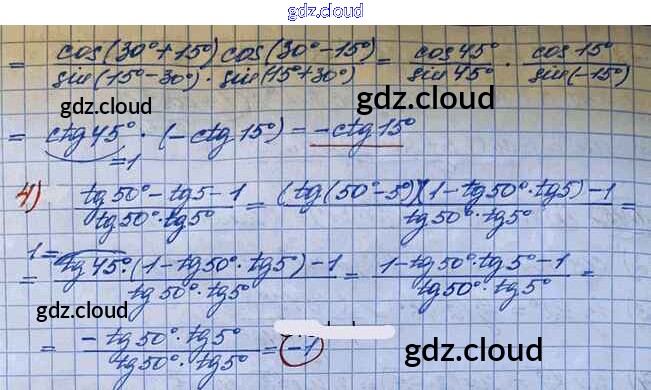 gdz.cloud
= cos(30°+15°) cos(30°-15°) / sin(15°-30°) · sin(15°+30°) = cos45° / sin45° · cos15° / sin(-15°)
gdz.cloud gdz.cloud
= ctg45° · (-ctg15°) = -ctg15°
=1
4) tg50°-tg5-1 / tg50°·tg5° = (tg(50°-5°)(1-tg50°·tg5)-1 / tg50°·tg5° =
1=
= tg45°·(1-tg50°·tg5°)-1 / tg50°·tg5° = 1-tg50°·tg5°-1 / tg50°·tg5° =
gdz.cloud gdz.cloud
= -tg50°·tg5° / tg50°·tg5° = -1
gdz.cloud